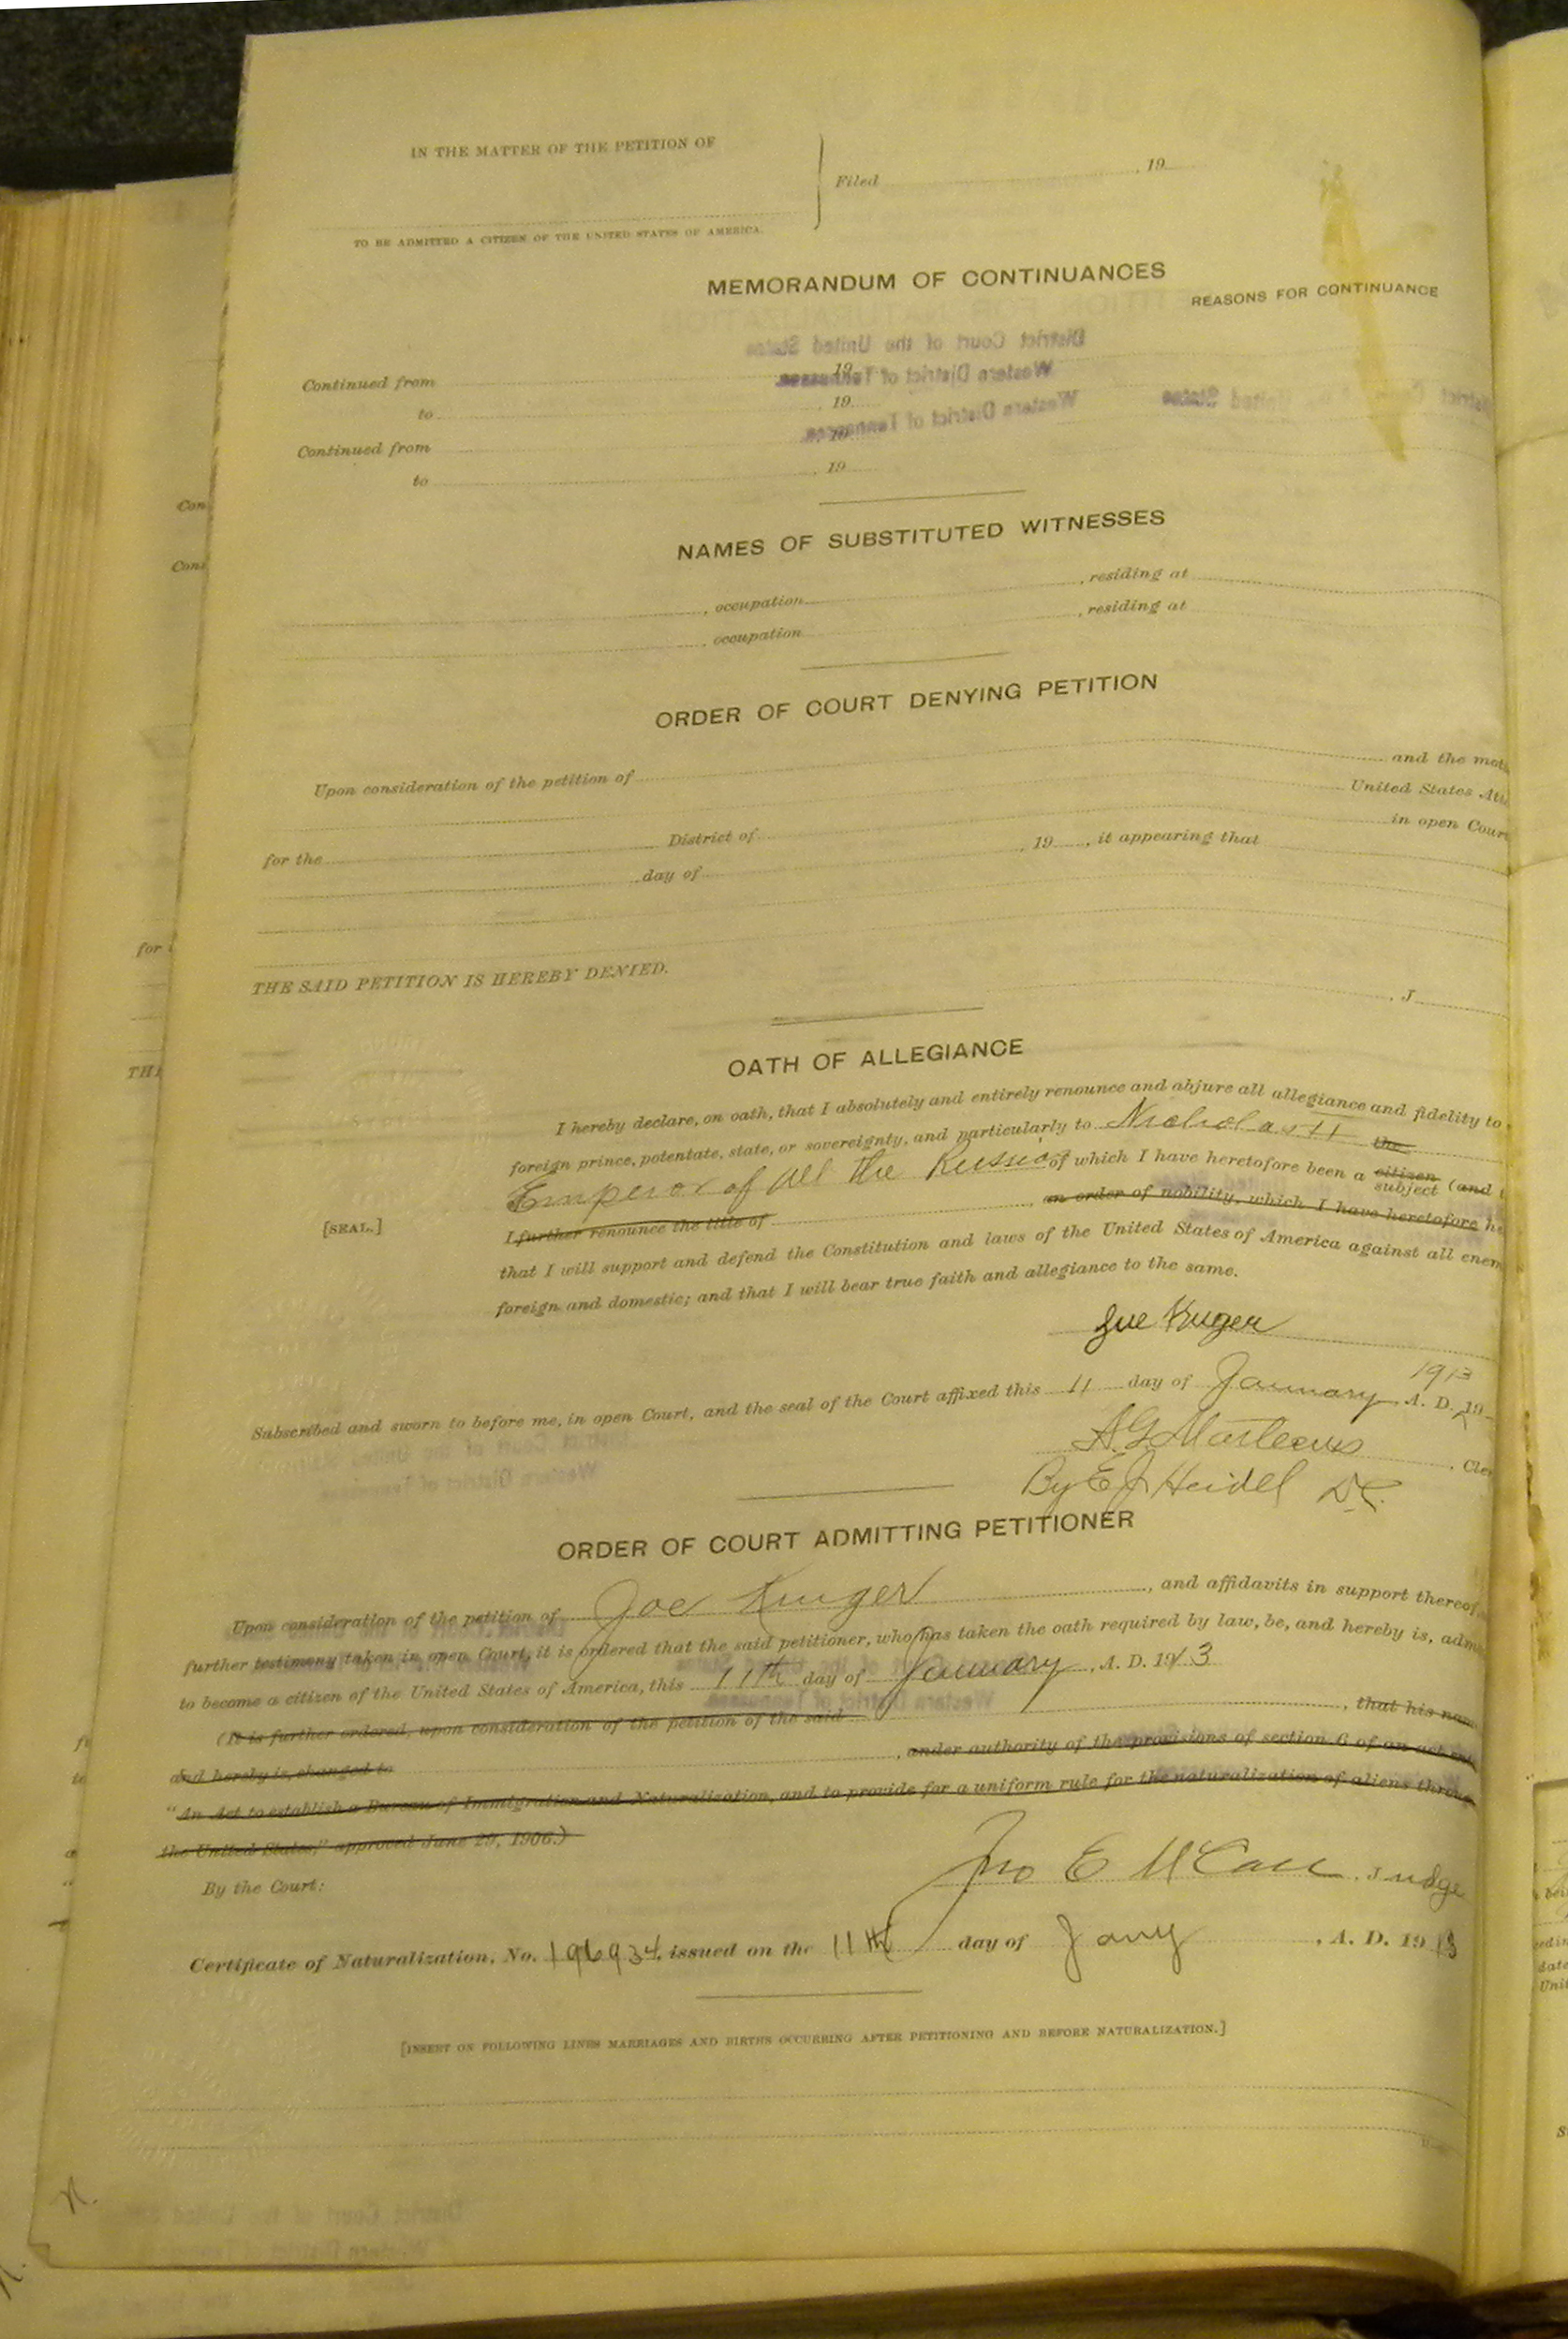 IN THE MATTER OF THE PETITION OF
Filed , 19
TO BE ADMITTED A CITIZEN OF THE UNITED STATES OF AMERICA.
MEMORANDUM OF CONTINUANCES
REASONS FOR CONTINUANCE
District Court of the United States
Continued from , 19
Western District of Tennessee
to , 19
Western District of Tennessee
Continued from , 19
to , 19
NAMES OF SUBSTITUTED WITNESSES
, occupation , residing at
, occupation , residing at
ORDER OF COURT DENYING PETITION
Upon consideration of the petition of and the mot
United States Att
for the District of in open Cour
day of , 19 , it appearing that
THE SAID PETITION IS HEREBY DENIED.
, J
OATH OF ALLEGIANCE
I hereby declare, on oath, that I absolutely and entirely renounce and abjure all allegiance and fidelity to
foreign prince, potentate, state, or sovereignty, and particularly to Nicholas II the
Emperor of all the Russias of which I have heretofore been a citizen subject (and
[SEAL.] I further renounce the title of , an order of nobility, which I have heretofore he
that I will support and defend the Constitution and laws of the United States of America against all enem
foreign and domestic; and that I will bear true faith and allegiance to the same.
Joe Kruger
Subscribed and sworn to before me, in open Court, and the seal of the Court affixed this 11 day of January A. D. 19 1913
A.G. Matthews , Cler
By E J Heidel D.C.
ORDER OF COURT ADMITTING PETITIONER
Upon consideration of the petition of Joe Kruger , and affidavits in support thereof
further testimony taken in open Court, it is ordered that the said petitioner, who has taken the oath required by law, be, and hereby is, adm
to become a citizen of the United States of America, this 11th day of January , A. D. 1913
(It is further ordered, upon consideration of the petition of the said , that his nam
and hereby is, changed to , under authority of the provisions of section 6 of an act
"An Act to establish a Bureau of Immigration and Naturalization, and to provide for a uniform rule for the naturalization of aliens throu
the United States," approved June 29, 1906.)
By the Court: Jno E McCall , Judge
Certificate of Naturalization, No. 196934, issued on the 11th day of Jany , A. D. 1913
[INSERT ON FOLLOWING LINES MARRIAGES AND BIRTHS OCCURRING AFTER PETITIONING AND BEFORE NATURALIZATION.]